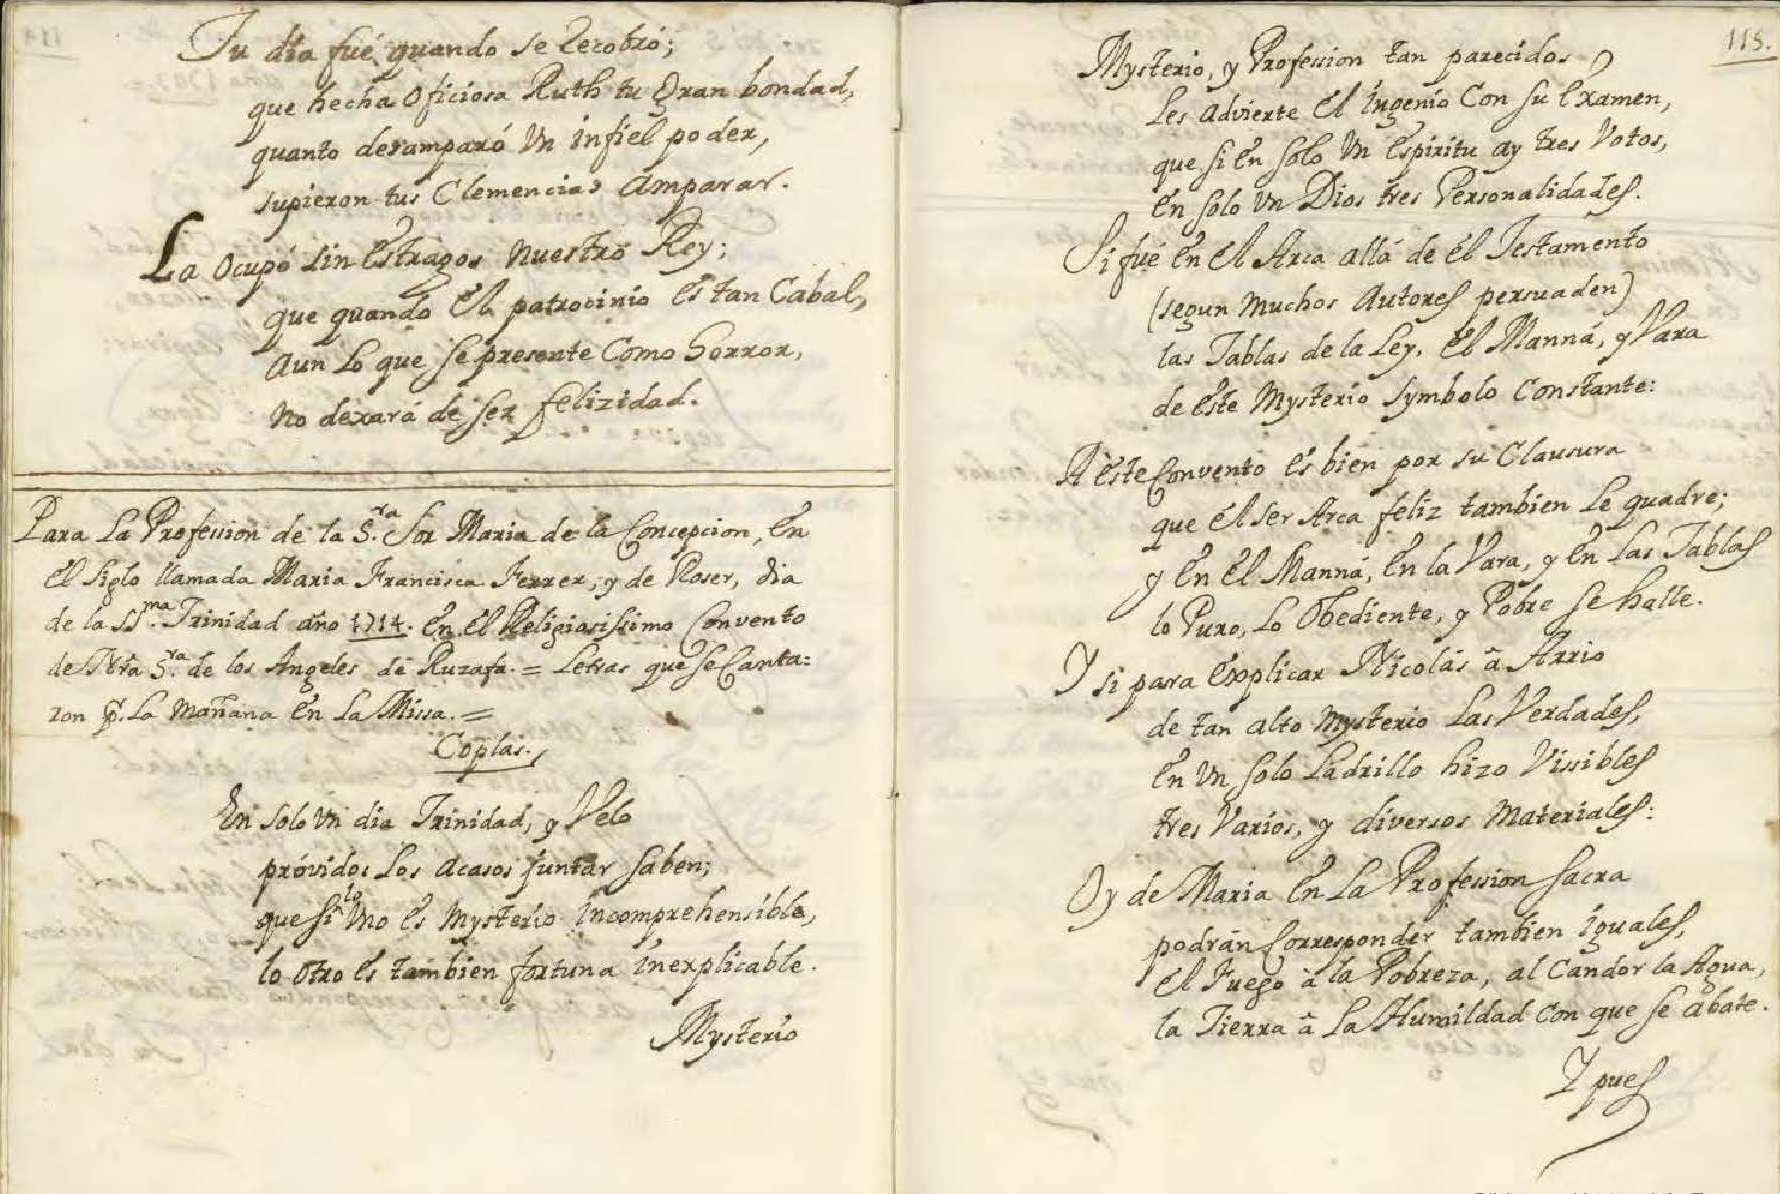 Tu dia fué, quando se recobró;
que hecha oficiosa Ruth tu Gran bondad,
quanto desamparó Un infiel poder,
supieron tus Clemencias Amparar.
La Ocupó sin Estragos nuestro Rey;
que quando El patrocinio es tan Cabal,
aun lo que se presente Como horror,
no dexará de ser felizidad.
Para La Profession de la S.ra Sor Maria de la Concepcion, En
El Siglo llamada Maria Francisca Ferrer, y de Roser, dia
de la SS.ma Trinidad año 1714. En El Religiosissimo Convento
de Ntra S.ra de los Angeles de Ruzafa. = Letras que se Canta=
ron p.r La Mañana En La Missa. =
Coplas.
En solo Un dia Trinidad, y Velo
próvidos los Acasos juntar saben;
que si lo Uno es Mysterio incomprehensible,
lo otro es tambien fortuna inexplicable.
Mysterio
115.
Mysterio, y Profession tan parecidos
les advierte El ingenio Con su Examen,
que si En solo Un Espiritu ay tres Votos,
En solo Un Dios tres Personalidades.
Si fué En El Arca allá de él Testamento
(segun muchos Autores persuaden)
las Tablas de la Ley, El Manná, y Vara
de este Mysterio symbolo Constante:
A este Convento es bien por su Clausura
que El ser Arca feliz tambien le quadre;
y En El Manná, En la Vara, y En las Tablas
lo Puro, lo Obediente, y Pobre se halle.
Y si para Explicar Nicolás â Arrio
de tan alto Mysterio Las Verdades,
En Un solo Ladrillo hizo Vissibles
tres Varios, y diversos Materiales:
Oy de Maria En La Profession sacra
podrán Corresponder tambien iguales,
El Fuego â la Pobreza, al Candor la Agua,
la Tierra â La Humildad Con que se abate.
Y pues